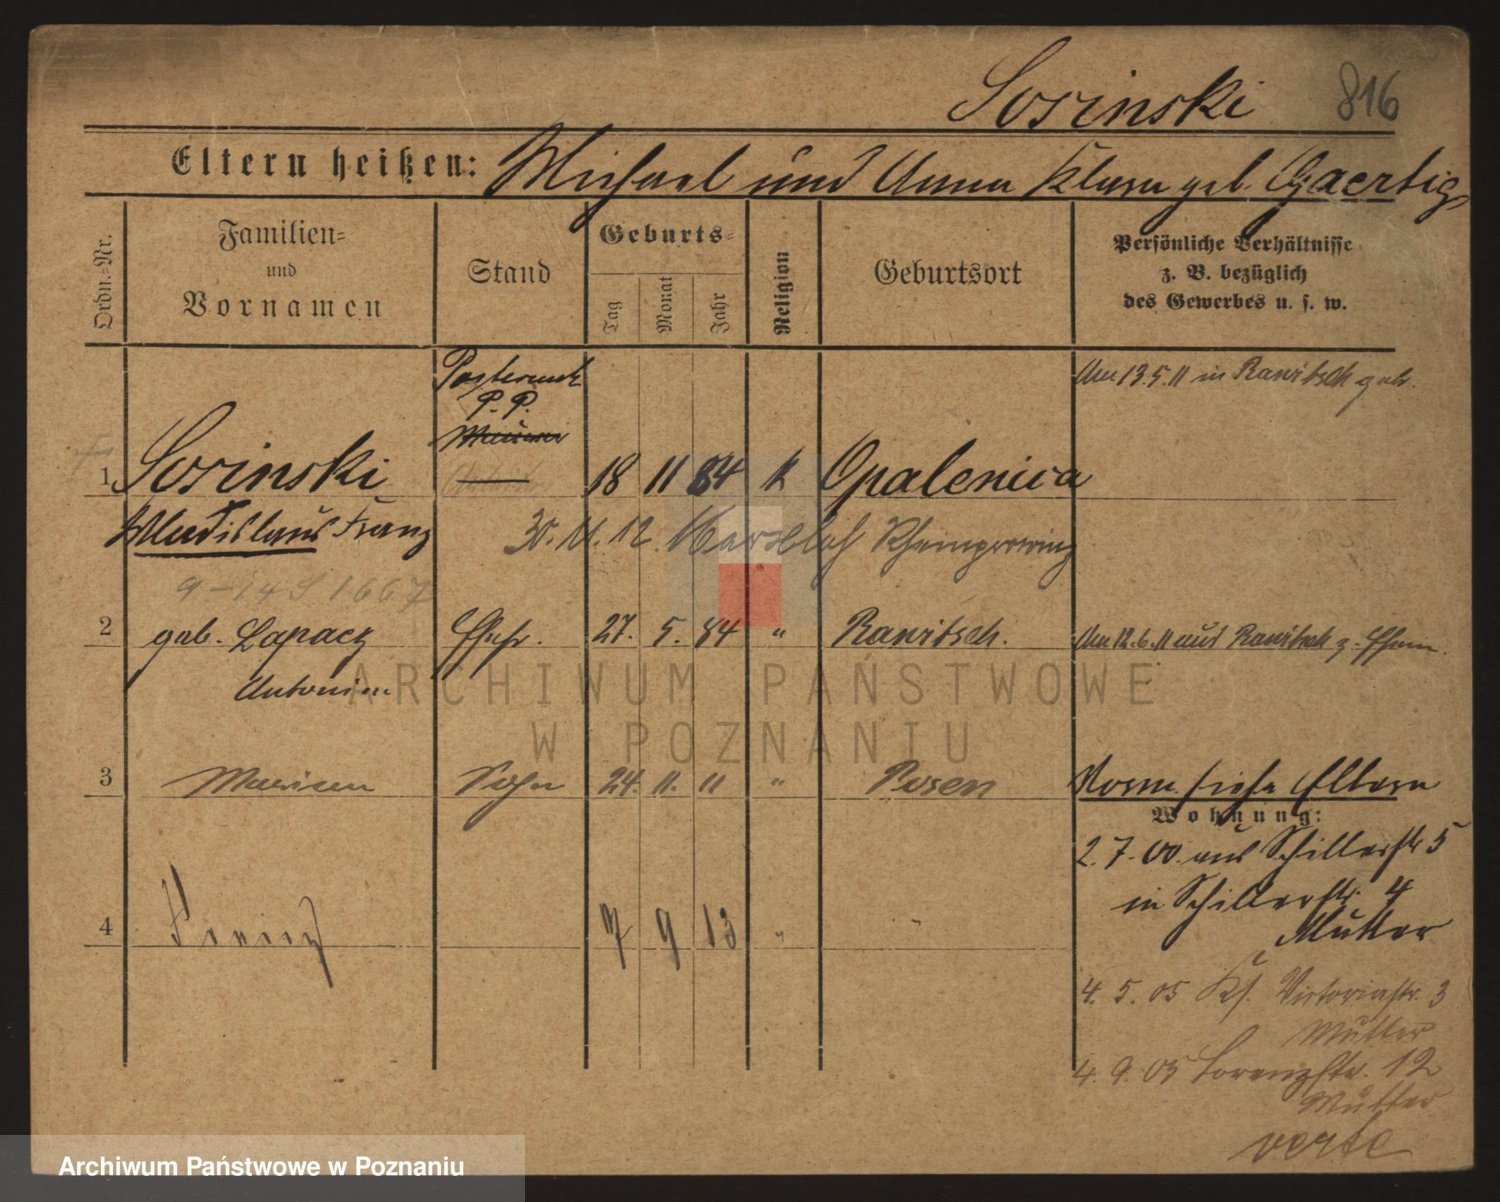 Sosinski 816
Eltern heißen: Michael und Anna Klara geb. Gaertig
Ordn.-Nr.
Familien-
und
Vornamen
Stand
Geburts-
Tag
Monat
Jahr
Religion
Geburtsort
Persönliche Verhältnisse
z. B. bezüglich
des Gewerbes u. s. w.
P. P.
Am 13.5.11 in Rawitsch geh.
1 Sosinski 18 11 84 k Opalenica
Wladislaus Franz 30. 11. 12. Rheinprovinz
2 geb. Lapacz Ehefr. 27. 5. 84 " Rawitsch. Am 12.6.11 aus Rawitsch z. Ehem.
Antonina
3 Marian Sohn 24. 11. 11 " Posen Vorm siehe Eltern
Wohnung:
2. 7. 00. aus Schillerstr 5
in Schillerstr. 4
Mutter
4 Franz 7 9 13 " "
4. 5. 05 Victoriastr. 3
Mutter
4. 9. 05 Lorenzstr. 12
Mutter
verte
ARCHIWUM PAŃSTWOWE
W POZNANIU
Archiwum Państwowe w Poznaniu